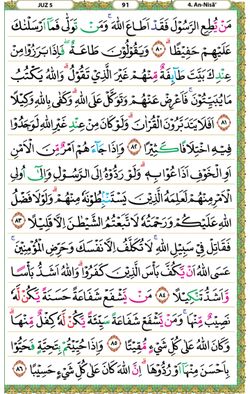 JUZ 5 91 4. An-Nisā'
مَنْ يُّطِعِ الرَّسُوْلَ فَقَدْ اَطَاعَ اللّٰهَ ۚ وَمَنْ تَوَلّٰى فَمَآ اَرْسَلْنٰكَ
عَلَيْهِمْ حَفِيْظًا ۗ ٨٠ وَيَقُوْلُوْنَ طَاعَةٌ ۖ فَاِذَا بَرَزُوْا مِنْ
عِنْدِكَ بَيَّتَ طَآئِفَةٌ مِّنْهُمْ غَيْرَ الَّذِيْ تَقُوْلُ ۗ وَاللّٰهُ يَكْتُبُ
مَا يُبَيِّتُوْنَ ۚ فَاَعْرِضْ عَنْهُمْ وَتَوَكَّلْ عَلَى اللّٰهِ ۗ وَكَفٰى بِاللّٰهِ وَكِيْلًا
٨١ اَفَلَا يَتَدَبَّرُوْنَ الْقُرْاٰنَ ۗ وَلَوْ كَانَ مِنْ عِنْدِ غَيْرِ اللّٰهِ لَوَجَدُوْا
فِيْهِ اخْتِلَافًا كَثِيْرًا ٨٢ وَاِذَا جَآءَهُمْ اَمْرٌ مِّنَ الْاَمْنِ
اَوِ الْخَوْفِ اَذَاعُوْا بِهٖ ۗ وَلَوْ رَدُّوْهُ اِلَى الرَّسُوْلِ وَاِلٰٓى اُولِى
الْاَمْرِ مِنْهُمْ لَعَلِمَهُ الَّذِيْنَ يَسْتَنْۢبِطُوْنَهٗ مِنْهُمْ ۗ وَلَوْلَا فَضْلُ
اللّٰهِ عَلَيْكُمْ وَرَحْمَتُهٗ لَاتَّبَعْتُمُ الشَّيْطٰنَ اِلَّا قَلِيْلًا ٨٣
فَقَاتِلْ فِيْ سَبِيْلِ اللّٰهِ ۚ لَا تُكَلَّفُ اِلَّا نَفْسَكَ وَحَرِّضِ الْمُؤْمِنِيْنَ ۚ
عَسَى اللّٰهُ اَنْ يَّكُفَّ بَأْسَ الَّذِيْنَ كَفَرُوْا ۗ وَاللّٰهُ اَشَدُّ بَأْسًا
وَّاَشَدُّ تَنْكِيْلًا ٨٤ مَنْ يَّشْفَعْ شَفَاعَةً حَسَنَةً يَّكُنْ لَّهٗ
نَصِيْبٌ مِّنْهَا ۚ وَمَنْ يَّشْفَعْ شَفَاعَةً سَيِّئَةً يَّكُنْ لَّهٗ كِفْلٌ مِّنْهَا ۗ
وَكَانَ اللّٰهُ عَلٰى كُلِّ شَيْءٍ مُّقِيْتًا ٨٥ وَاِذَا حُيِّيْتُمْ بِتَحِيَّةٍ فَحَيُّوْا
بِاَحْسَنَ مِنْهَآ اَوْ رُدُّوْهَا ۗ اِنَّ اللّٰهَ كَانَ عَلٰى كُلِّ شَيْءٍ حَسِيْبًا ٨٦